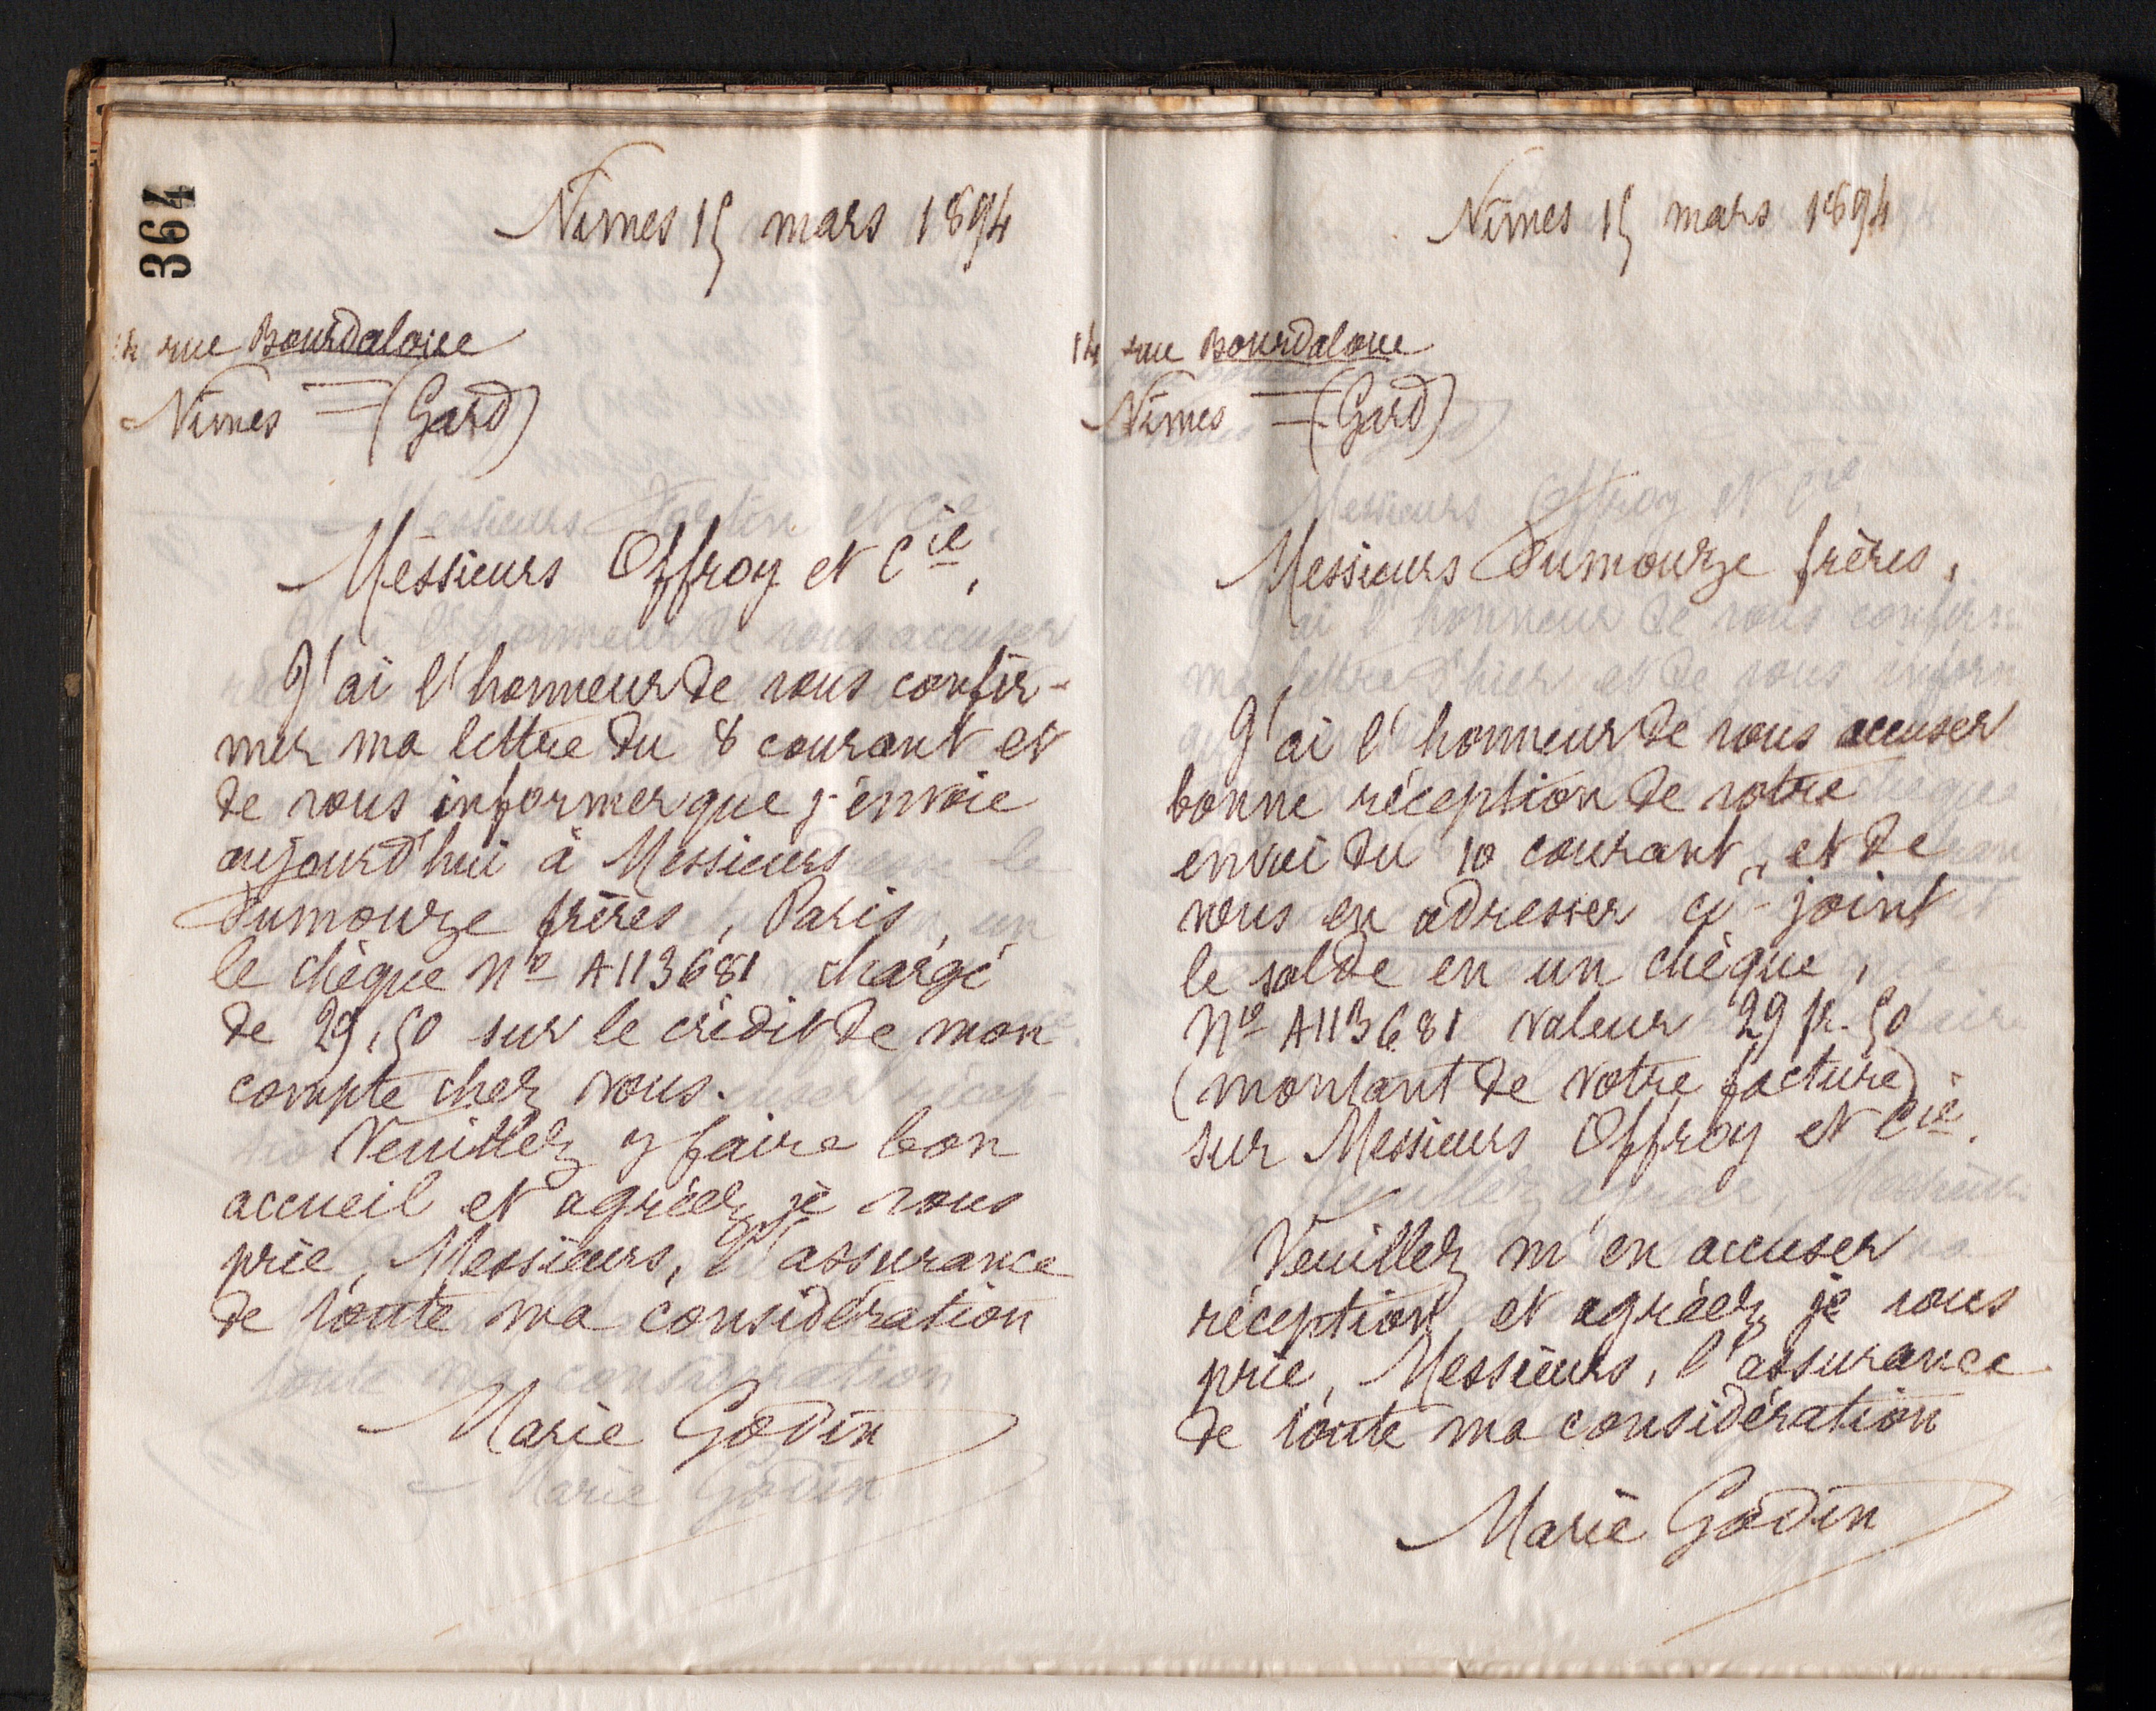 364
Nîmes 15 mars 1894
14 rue Bourdaloue
Nîmes = (Gard)
Messieurs Offroy et Cie,
J'ai l'honneur de vous confir-
mer ma lettre du 8 courant et
de vous informer que j'envoie
aujourd'hui à Messieurs
Dumouze frères, Paris,
le chèque No A113681 chargé
de 29,50 sur le crédit de mon
compte chez vous.
Veuillez y faire bon
accueil et agréez, je vous
prie, Messieurs, l'assurance
de toute ma considération
Marie Godin
Nîmes 15 mars 1894
14 rue Bourdaloue
Nîmes = (Gard)
Messieurs Dumouze frères,
J'ai l'honneur de vous accuser
bonne réception de votre
envoi du 10 courant, et de
vous en adresser ci-joint
le solde en un chèque,
No A113681 valeur 29 fr. 50
(montant de votre facture)
sur Messieurs Offroy et Cie.
Veuillez m'en accuser
réception et agréez, je vous
prie, Messieurs, l'assurance
de toute ma considération
Marie Godin